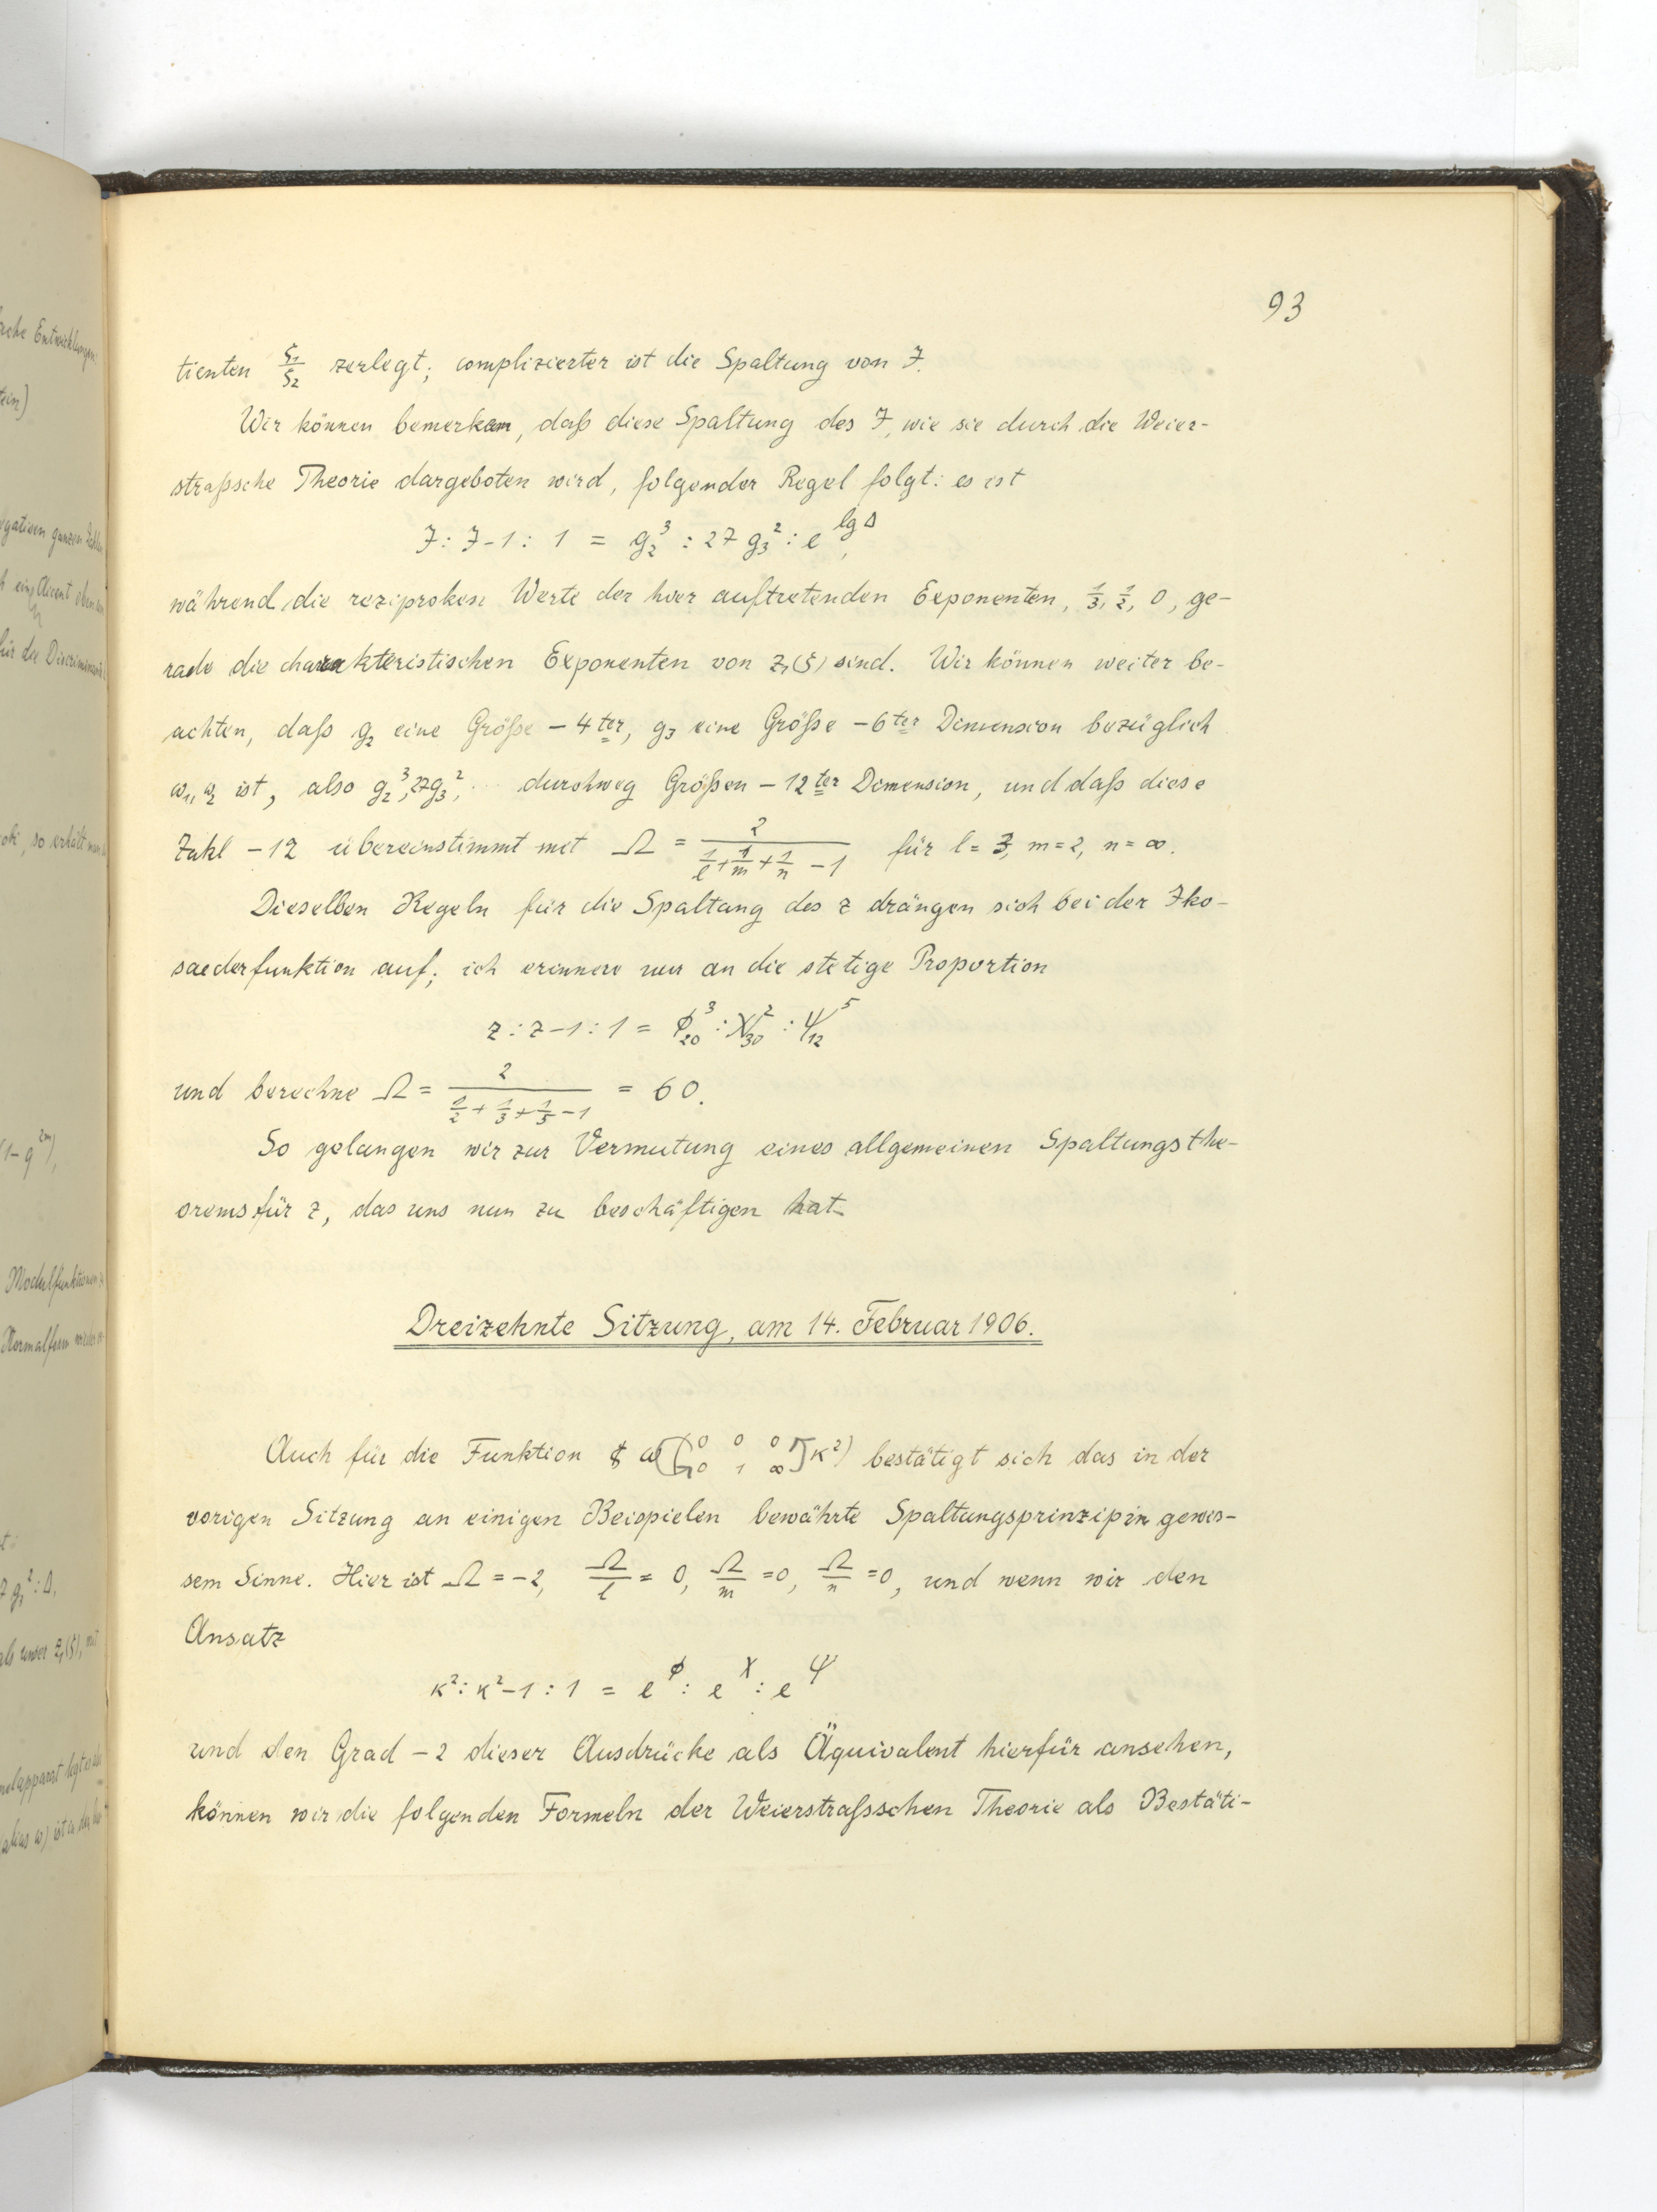 93
tienten ζ₁/ζ₂ zerlegt; complizierter ist die Spaltung von J.
Wir können bemerken, daß diese Spaltung des J, wie sie durch die Weier-
straßsche Theorie dargeboten wird, folgender Regel folgt: es ist
J : J-1 : 1 = g₂³ : 27 g₃² : e^{lg Δ},
während die reziproken Werte der hier auftretenden Exponenten, 1/3, 1/2, 0, ge-
rade die charakteristischen Exponenten von z₁(ζ) sind. Wir können weiter be-
achten, daß g₂ eine Größe -4ter, g₃ eine Größe -6ter Dimension bezüglich
ω₁, ω₂ ist, also g₂³, 27g₃², ... durchweg Größen -12ter Dimension, und daß diese
Zahl -12 übereinstimmt mit Ω = 2/(1/l + 1/m + 1/n - 1) für l = 3, m = 2, n = ∞.
Dieselben Regeln für die Spaltung des z drängen sich bei der Iko-
saederfunktion auf; ich erinnere nur an die stetige Proportion
z : z-1 : 1 = ϕ₂₀³ : χ₃₀² : ψ₁₂⁵
und berechne Ω = 2/(1/2 + 1/3 + 1/5 - 1) = 60.
So gelangen wir zur Vermutung eines allgemeinen Spaltungsthe-
orems für z, das uns nun zu beschäftigen hat.
Dreizehnte Sitzung, am 14. Februar 1906.
Auch für die Funktion ω([0 0 0 / 0 1 ∞] κ²) bestätigt sich das in der
vorigen Sitzung an einigen Beispielen bewährte Spaltungsprinzip in gewis-
sem Sinne. Hier ist Ω = -2, Ω/l = 0, Ω/m = 0, Ω/n = 0, und wenn wir den
Ansatz
κ² : κ²-1 : 1 = e^ϕ : e^χ : e^ψ
und den Grad -2 dieser Ausdrücke als Äquivalent hierfür ansehen,
können wir die folgenden Formeln der Weierstraßschen Theorie als Bestäti-